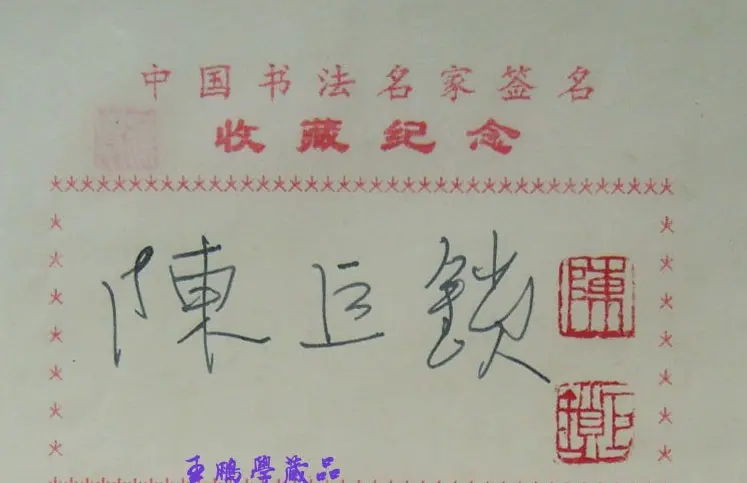 中国书法名家签名
收藏纪念
陳巨鎖
陳
巨鎖
王鵬學藏品